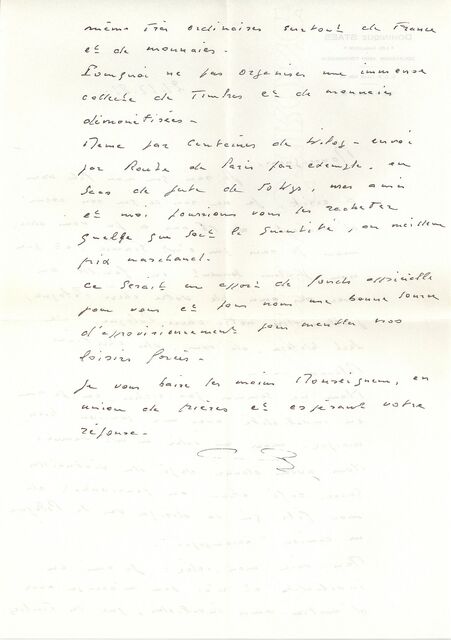 même très ordinaires surtout de France
et de monnaies.
Pourquoi ne pas organiser une immense
collecte de Timbres et de monnaies
démonétisées.
Même par Centaines de kilogs - envoi
par Route de Paris par exemple, en
sacs de jute de 50 kgs, mes amis
et moi pourrions vous les racheter
quelque que soit la quantité, au meilleur
prix marchand.
ce serait un apport de fonds
pour vous et pour nous une bonne source
d'approvisionnement pour meubler nos
loisirs forcés.
Je vous baise les mains Monseigneur, en
union de prières et espérant votre
réponse.